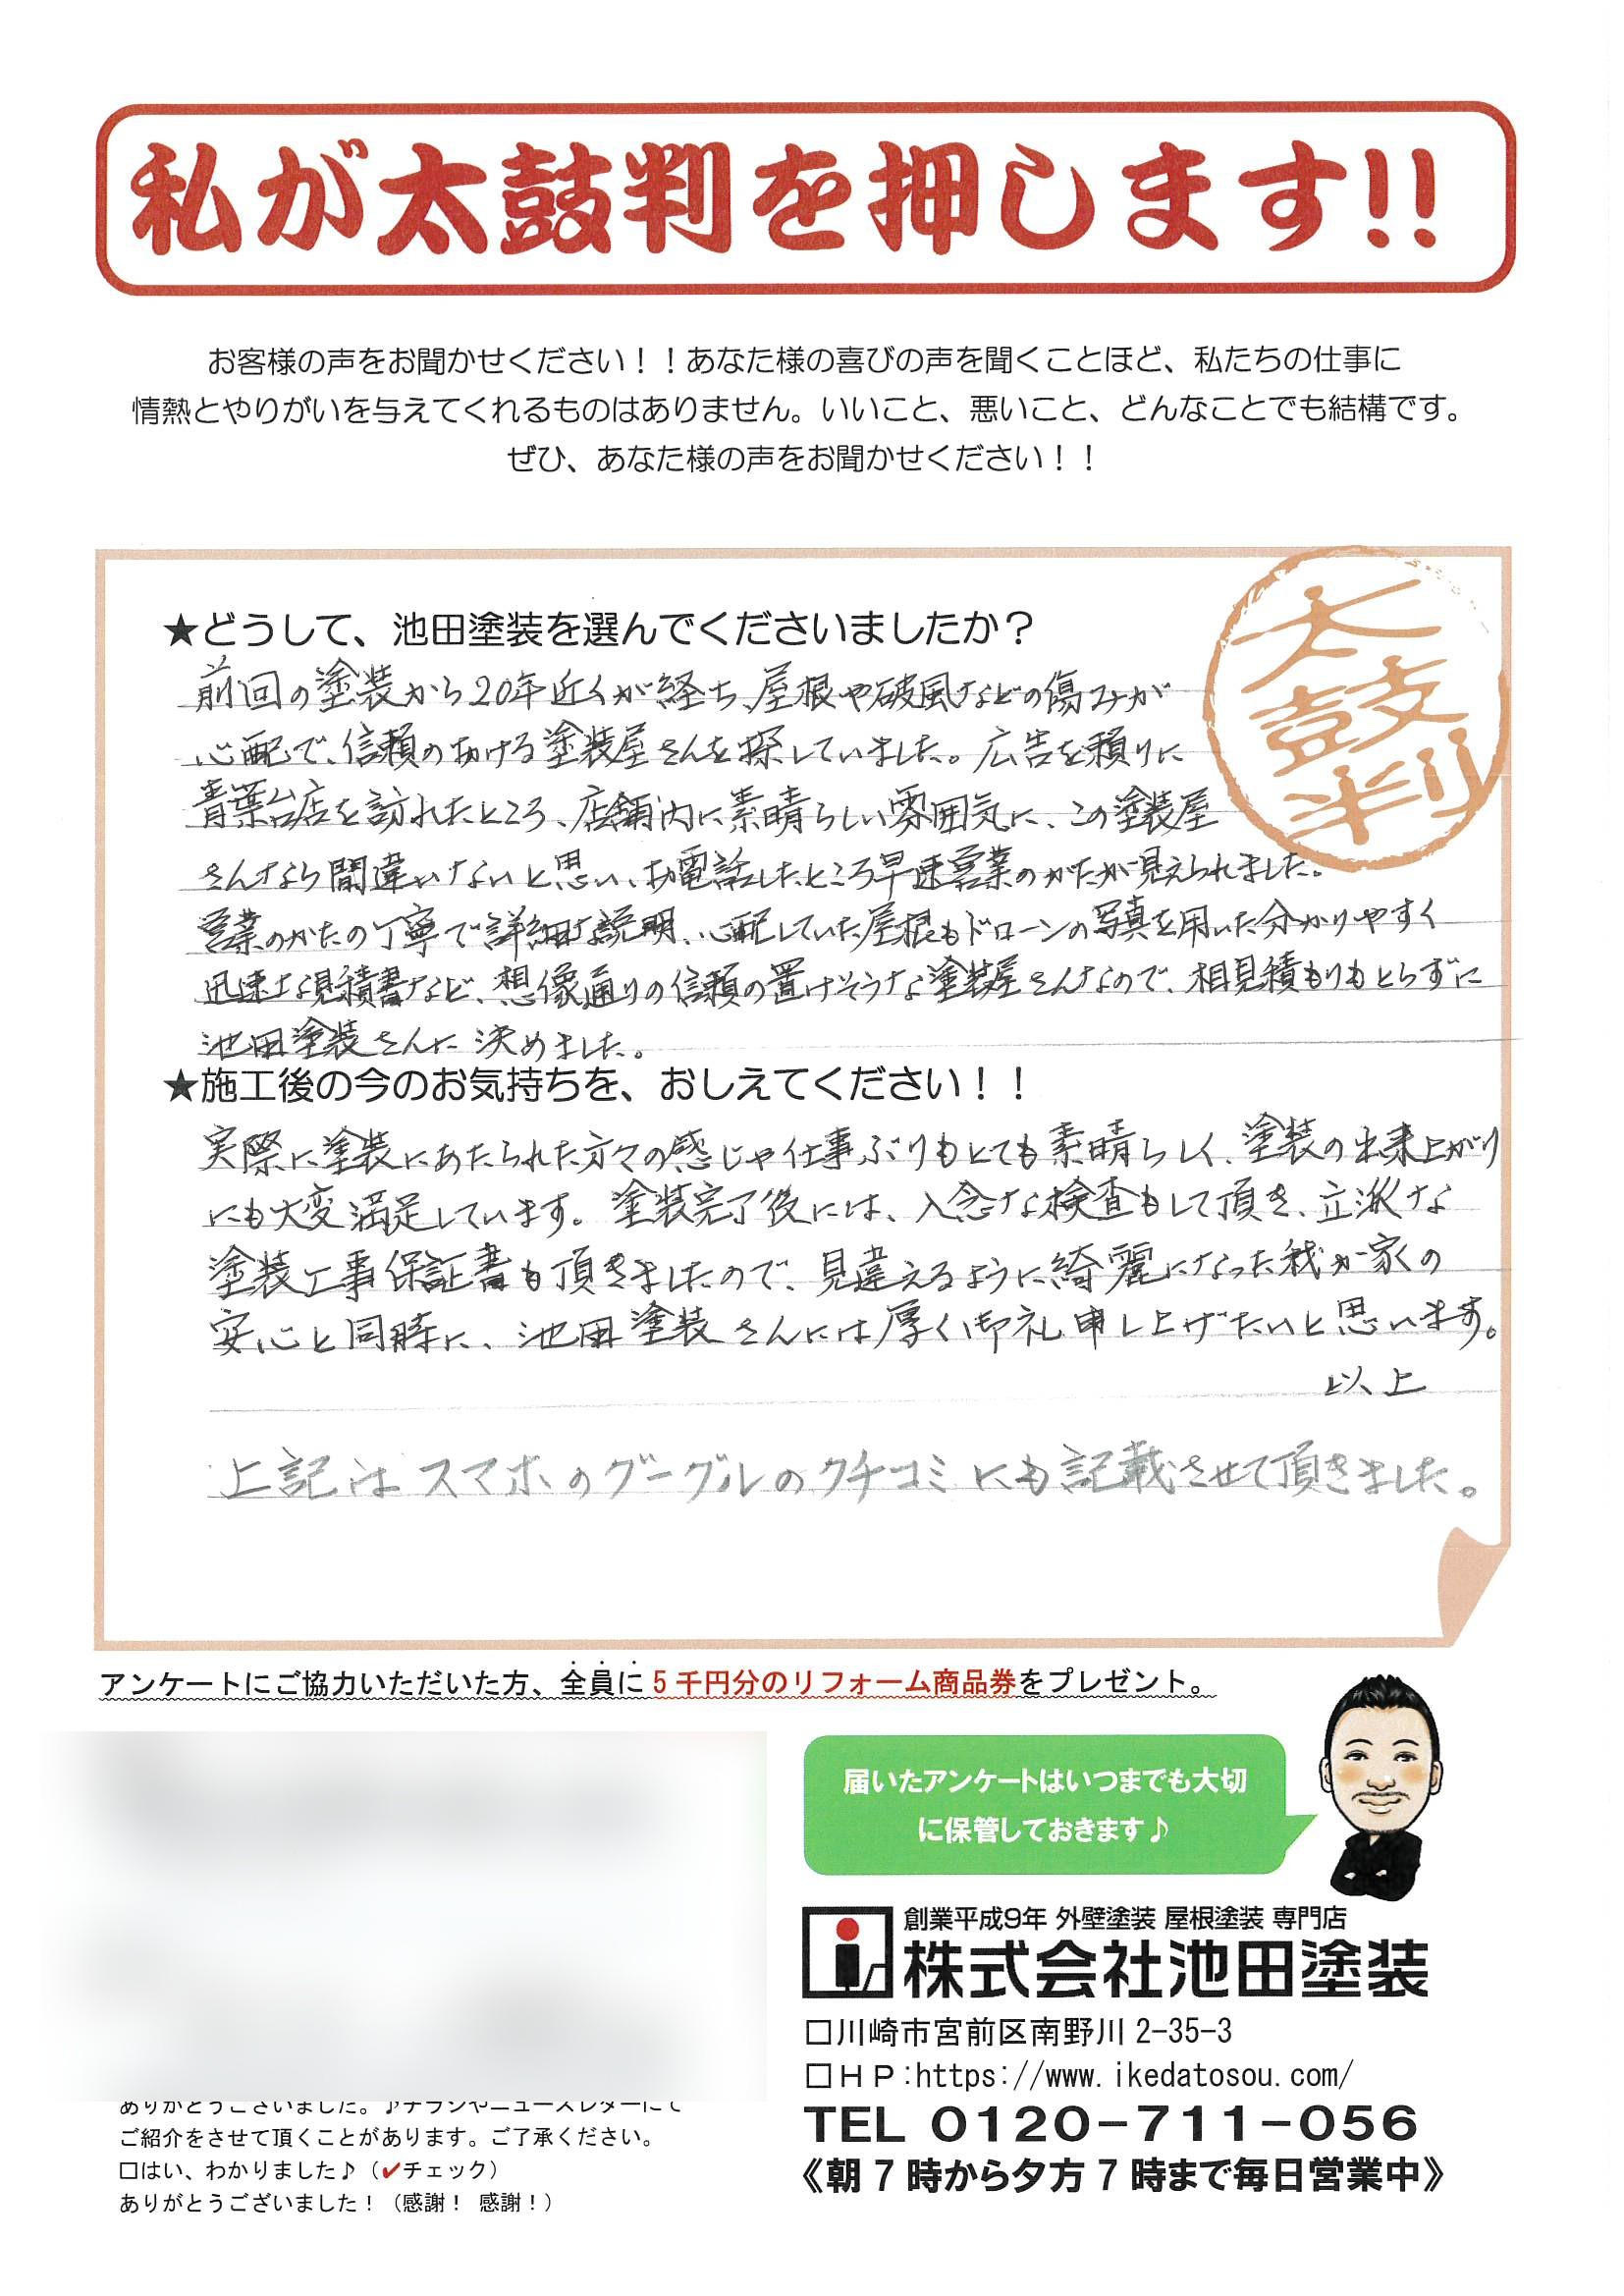 私が太鼓判を押します!!
お客様の声をお聞かせください！！あなた様の喜びの声を聞くことほど、私たちの仕事に
情熱とやりがいを与えてくれるものはありません。いいこと、悪いこと、どんなことでも結構です。
ぜひ、あなた様の声をお聞かせください！！
太鼓判
★どうして、池田塗装を選んでくださいましたか？
前回の塗装から20年近くが経ち、屋根や破風などの傷みが
心配で、信頼のおける塗装屋さんを探していました。広告を頼りに
青葉台店を訪れたところ、店舗内に素晴らしい雰囲気に、この塗装屋
さんなら間違いないと思い、お電話したところ早速営業のかたが見えられました。
営業のかたの丁寧で詳細な説明、心配していた屋根もドローンの写真を用いた分かりやすく
迅速な見積書など、想像通りの信頼の置けそうな塗装屋さんなので、相見積もりもとらずに
池田塗装さんに決めました。
★施工後の今のお気持ちを、おしえてください！！
実際に塗装にあたられた方々の感じや仕事ぶりもとても素晴らしく、塗装の出来上がり
にも大変満足しています。塗装完了後には、入念な検査もして頂き、立派な
塗装工事保証書も頂きましたので、見違えるように綺麗になった我が家の
安心と同時に、池田塗装さんには厚く御礼申し上げたいと思います。
以上
上記はスマホのグーグルのクチコミにも記載させて頂きました。
アンケートにご協力いただいた方、全員に5千円分のリフォーム商品券をプレゼント。
届いたアンケートはいつまでも大切
に保管しておきます♪
創業平成9年 外壁塗装 屋根塗装 専門店
株式会社池田塗装
□川崎市宮前区南野川2-35-3
□ＨＰ:https://www.ikedatosou.com/
TEL 0120-711-056
《朝7時から夕方7時まで毎日営業中》
ありがとうございました。♪チラシやニュースレターにて
ご紹介をさせて頂くことがあります。ご了承ください。
□はい、わかりました♪（✔チェック）
ありがとうございました！（感謝！ 感謝！）